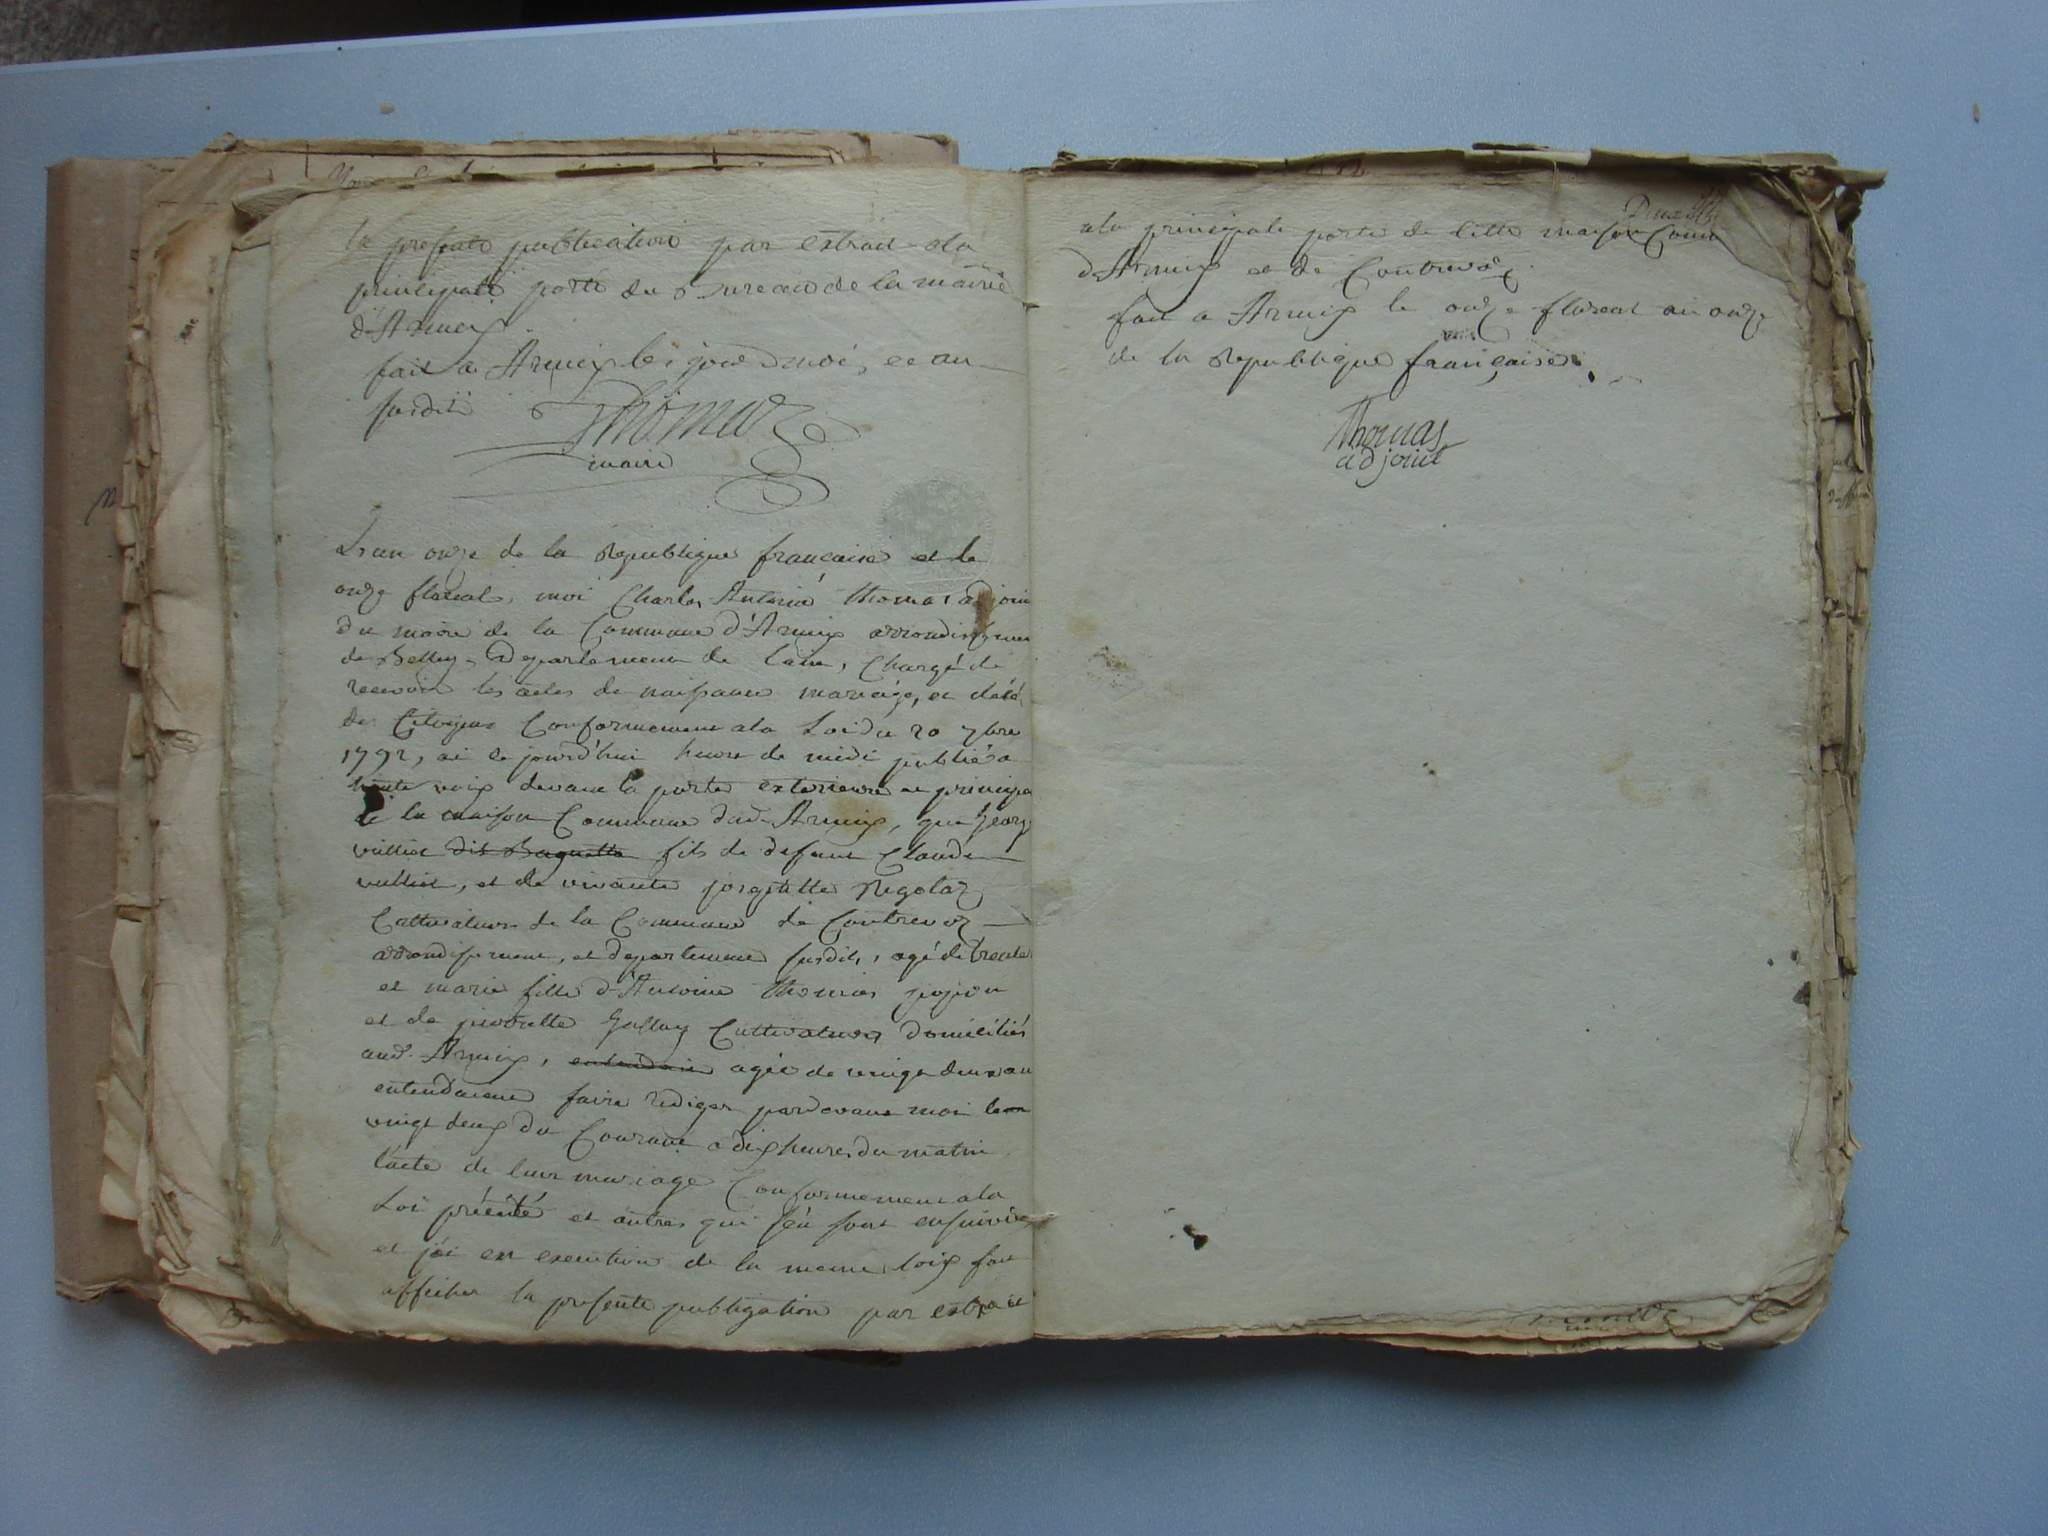 la presente publication par extrait ala
principale porte du Bureau de la mairie
d'Armix.
fait a Armix les jour mois, et an
susdit Thomas
maire
L'an onze de la Republique francaise et le
onze floreal, moi Charles Antoine thomas adjoin
du maire de la Commune d'Armix arrondissemen
de Belley, Departement de l'ain, Chargé de
recevoir les actes de naissance mariage, et décé
des Citoyens Conformement ala Loi du 20 7bre
1792, ai ce jourd'hui heure de midi publié a
haute voix devant la porte exterieure et principa
de la maison Commune dud. Armix, que George
vullict dit Baquette fils de defunt Claude
vullict, et de vivante josephtte Regolaz
Cultivateurs de la Commune de Contrevoz
arrondissement, et departement susdits, agé de trente
et marie fille d'Antoine thomas
et de pierrette Gallay Cultivateurs domiciliés
aud. Armix, entendaien agée de vingt deux an
entendaient faire rediger pardevant moi le
vingt deux du Courant a dix heures du matin
l'acte de leur mariage Conformement ala
Loi précité et autres qui s'en sont ensuivies
et j'ai en execution de la meme loix fait
afficher la presente publigation par extrait
ala principale porte de cette maison Comm
d'Armix et de Contrevoz.
fait a Armix le onze floreal an onze
de la Republique française
Thomas
adjoint